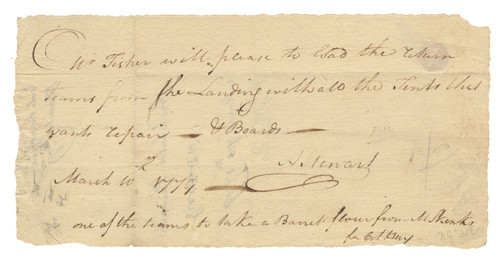 Mr Fisher will please to load the return
teams from the Landing with all the Tents that
wants repair — & Boards —
A Stewart
March 10th 1779
one of the teams to take a Barrel flour from Mr
for